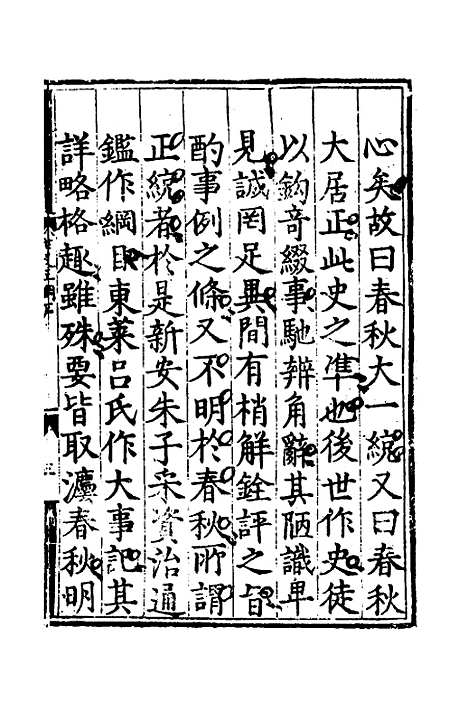 心矣故曰春秋大一統又曰春秋
大居正此史之凖也後世作史徒
以鈎竒綴事馳辨角辭其陋識卑
見誠罔足異間有梢解銓評之旨
酌事例之條又不明於春秋所謂
正統者於是新安朱子采資治通
鑑作綱目東萊呂氏作大事記其
詳略格趣雖殊要皆取灋春秋明